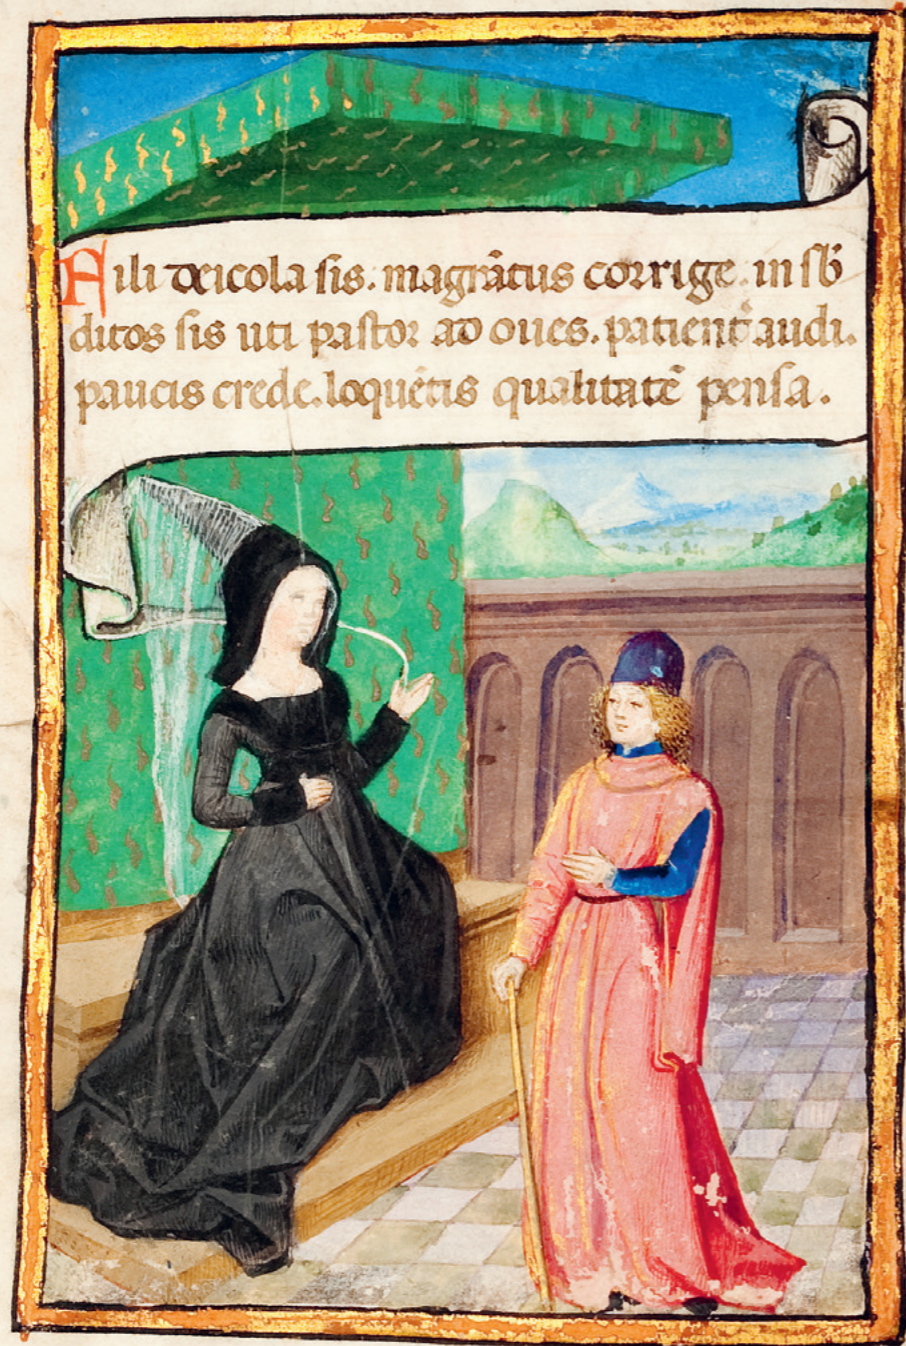 Fili deicola sis. magnãtus corrige. in sb̃
ditos sis uti pastor ad oues. patient̃ audi.
paucis crede. loquẽtis qualitatẽ pensa.